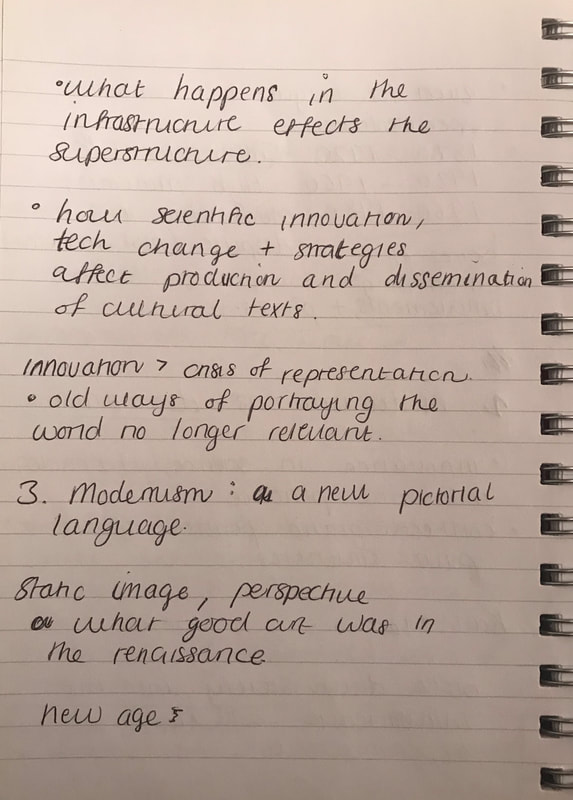 •what happens in the
infrastructure effects the
superstructure.
• how scientific innovation,
tech change + strategies
affect production and dissemination
of cultural texts.
innovation > crisis of representation.
• old ways of portraying the
world no longer relevant.
3. Modernism : a new pictorial
language.
static image, perspective
what good art was in
the renaissance
new age :